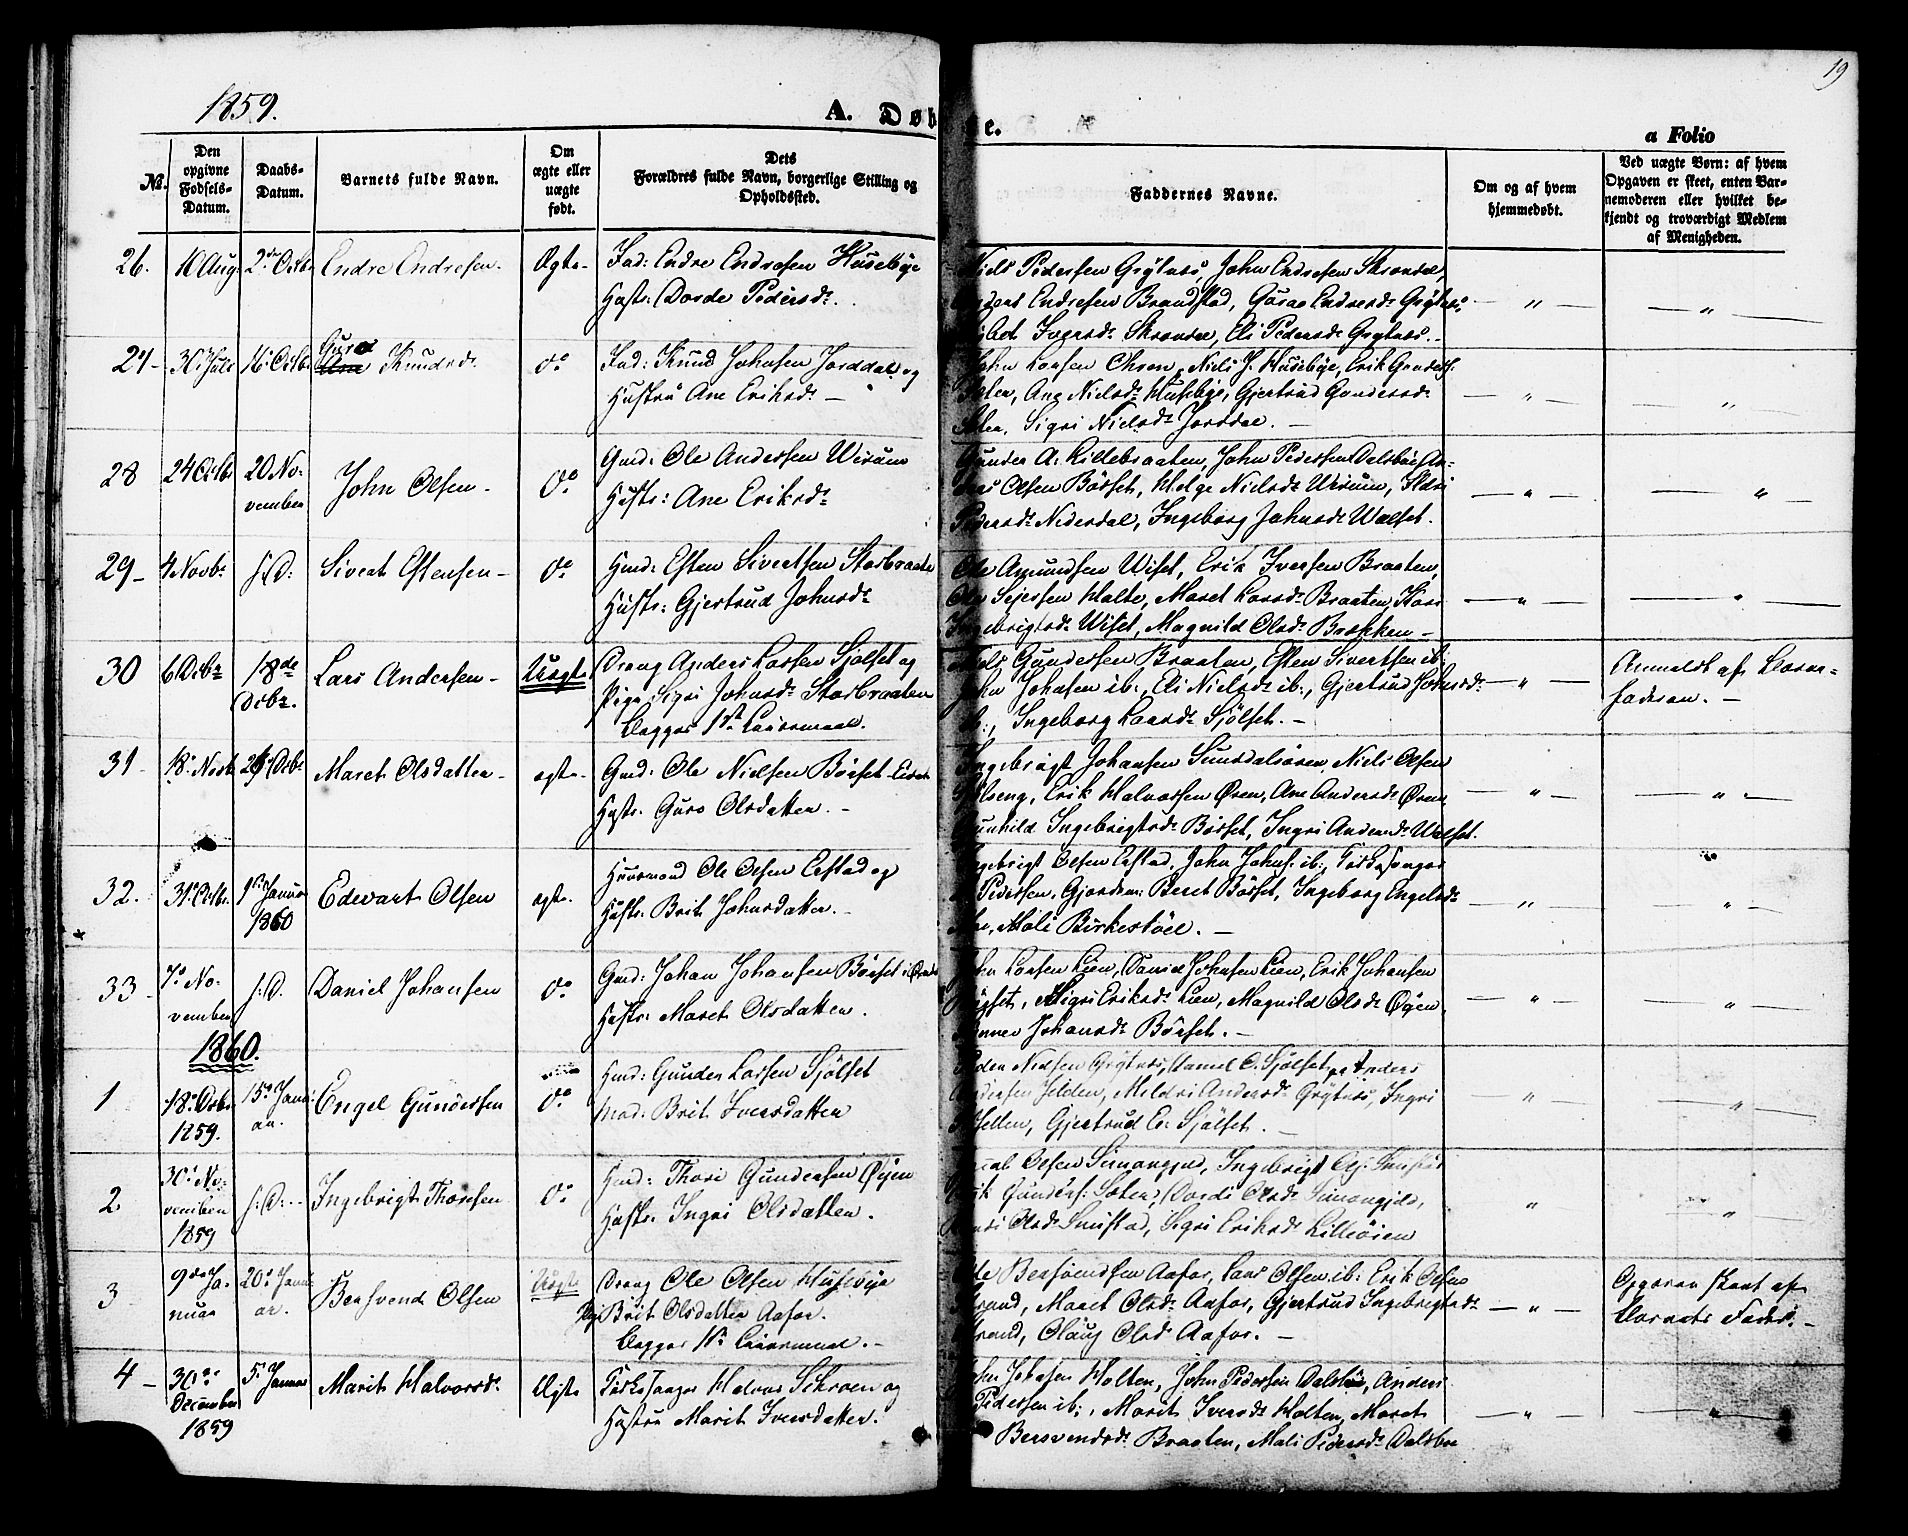 1859.
A. Døb
e.
19
a Folio
No.
Den opgivne Fødsels-Datum.
Daabs-Datum.
Barnets fulde Navn.
Om ægte eller uægte født.
Dets Forældres fulde Navn, borgerlige Stilling og Opholdssted.
Faddernes Navne.
Om og af hvem hjemmedøbt.
Ved uægte Born: af hvem Opgaven er skeet, enten Barnemoderen eller hvilket bekjendt og troværdigt Medlem af Menigheden.
26. 10 Aug 2de Octbr Endre Endresen. Ægte
Endre Endresen Husebye
Hustr: Dorde Pedersdr.
Niels Pedersen Grytnes, John Endresen Skrondal,
Endresen Brandstad, Guroe Endresdr Grytnes
Iversdr Skrondal, Eli Pedersdr Grytnes.
27 30 Juli 16 Octbr Guro Knudsdr. do
Knud Johnsen Jorddal og
Hustru Ane Eriksdr
John Larsen Ohren, Niels J. Husebye, Erik
Ane Nielsdr Husebye, Gjertrud Gundersdr
Sigri Nielsdr Jorddal.
28 24 Octbr 20 November John Olsen do
Gmd: Ole Andersen Wirum
Hustr: Ane Eriksdr
Gunder A. Lillebraaten, John Pedersen Dalsbøe, An-
Olsen Børset, Helge Nielsdr Wirum,
Pedersdr Nederdal, Ingeborg Johnsdr Walset.
29 4 Novbr s: D: Sivert Estensen do
Hmd: Esten Sivertsen Storbraaten
Hustr: Gjertrud Johnsdr
Ole Amundsen Wiset, Erik Iversen Braaten,
Ole Sejersen Holte, Maret Larsdr Braaten, Kari
Ingebrigtsdr Wiset, Magnild Olsdr Bakken
30 6 Decbr 18de Decbr. Lars Andersen Uægte
Dreng Anders Larsen Sjölset og
Pige Sigri Johnsdr Storbraaten
Begges 1ste Leiermaal.
Niels Gundersen Braaten, Esten Sivertsen ib:
John Johnsen ib:, Eli Nielsdr ib:, Gjertrud Johnsdr
ib:, Ingeborg Larsdr Sjölset.
Anmeldt af Barne-
faderen.
31 18 Novbr 26 Decbr Maret Olsdatter ægte
Gmd: Ole Nielsen Børset
Hustr. Guro Olsdatter.
Ingebrigt Johansen Sundalsøren, Niels Olsen
Erik Halvorsen Øren, Ane Andersdr Øren
Gunhild Ingebrigtsdr Børset, Ingri Andersdr Walset.
32. 31 Octbr 1ste Januar 1860 Edevart Olsen ægte
Huusmand Ole Olsen Erstad og
Hustr: Brit Johnsdatter.
Ingebrigt Olsen Erstad, John Johns. ib:, Kirkesanger
Pedersen, Gjordem: Beret Børset, Ingeborg Engelsdr
Mali Birkestöel.
33 7de November s: D. Daniel Johansen do
Gmd: Johan Johansen Børset
Hustr: Maret Olsdatter.
John Larsen Lien, Daniel Johnsen Lien, Erik Johansen
Sigri Eriksdr Lien, Magnild Olsdr Øyen,
Johansdr Børset.
1860.
1 18 Decbr 1859. 15de Januar Engel Gundersen do
Hmd: Gunder Larsen Sjölset
Mod: Brit Iversdatter
Peder Nielsen Grytnes, Daniel E. Sjölset, Anders
Andersen Jelden, Mildri Andersdr Grytnes, Ingri
Gjertrud Er. Sjölset.
2 30 November 1859 s: D: Ingebrigt Thoresen do
Hmd: Thore Gundersen Øyen
Hustr. Ingri Olsdatter.
Olsen Simongjerd, Ingebrigt
Gunders. Dordi Olsdr Simongjerd,
Olsdr Smistad, Sigri Eriksdr Lilleöien
3 9de Januar 20de Januar Bersvend Olsen Uægte
Dreng Ole Olsen Husebye
Pige Brit Olsdatter Aafar.
Begges 1ste Leiermaal.
Ole Bersvendsen Aafar, Lars Olsen ib: Erik Olsen
Strand, Maret Olsdr Aafar, Gjertrud Ingebrigtsdr
Strand, Olaug Olsd Aafar.
Opgaven skeet af
Barnets Fader.
4 30de December 1859 5 Januar Marit Halvorsdr. Ægte
Kirkesanger Halvor Schroen og
Hustru Marit Iversdatter.
John Johnsen Holten, John Pedersen Dalsbøe, Anders
Pedersen ib:, Marit Iversdr Holten, Maret
Bersvendsdr Braaten, Mali Pedersdr Dalsbøe